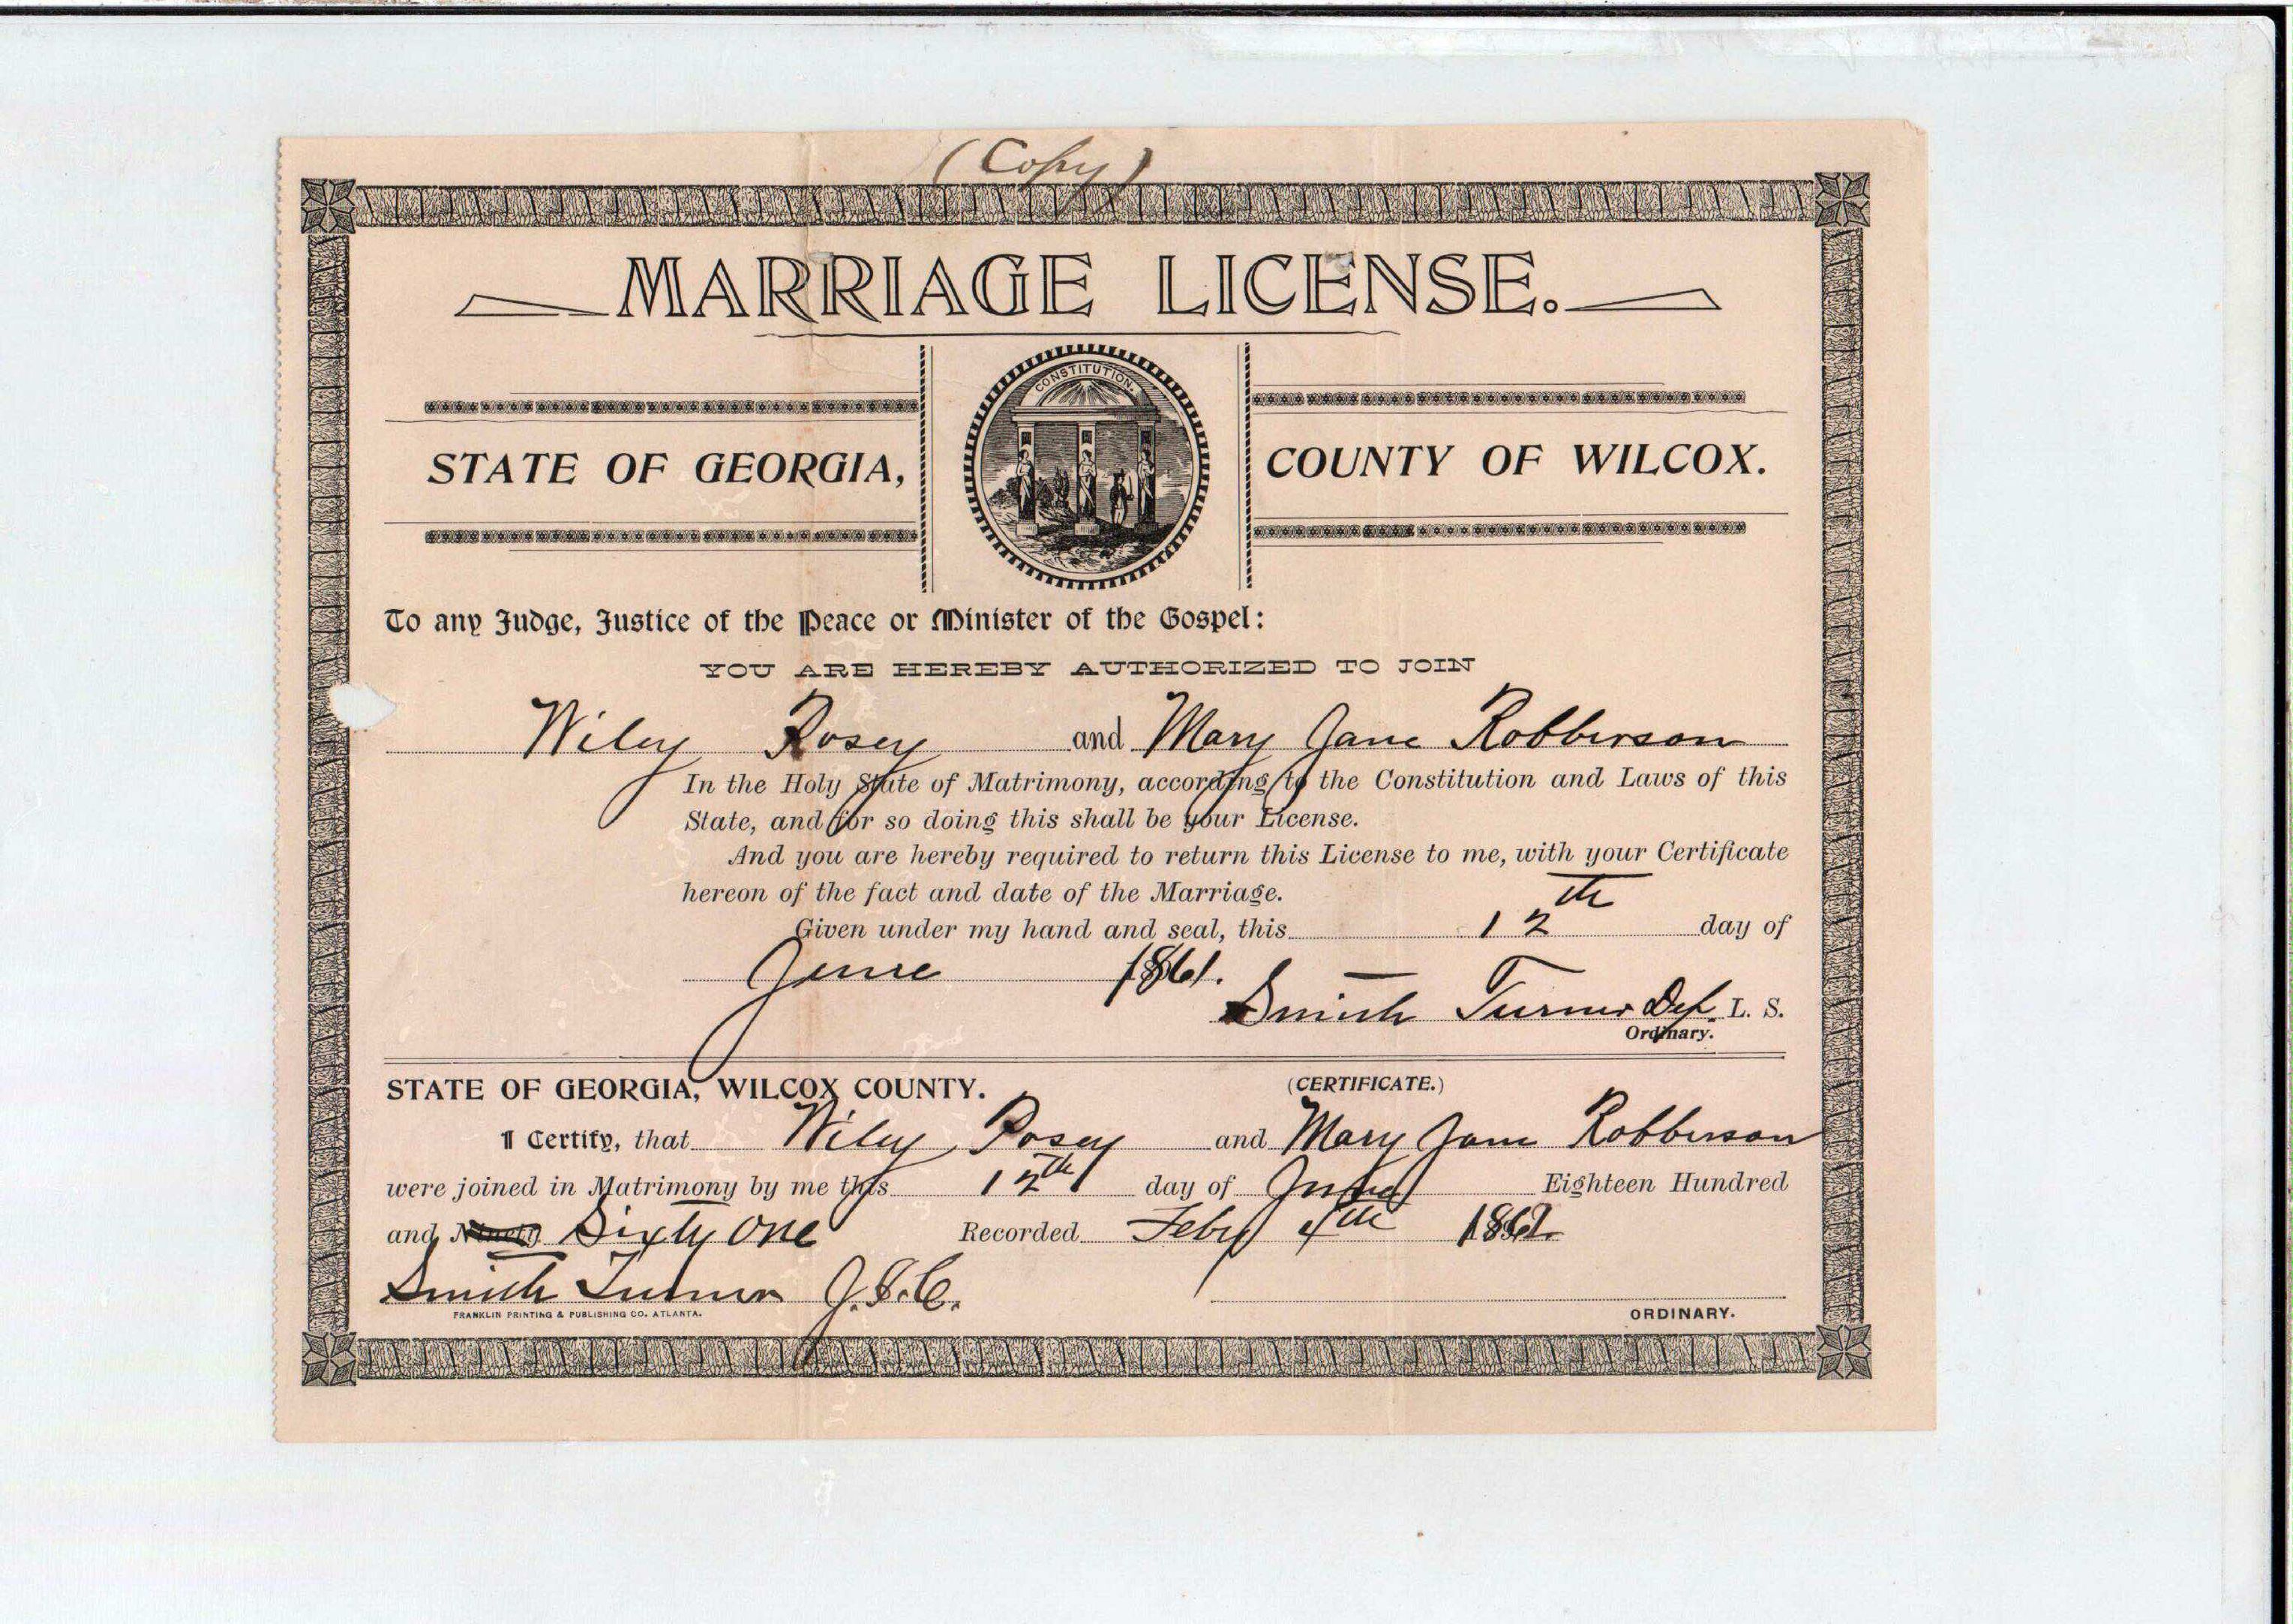 (Copy)
MARRIAGE LICENSE.
CONSTITUTION.
STATE OF GEORGIA, COUNTY OF WILCOX.
To any Judge, Justice of the Peace or Minister of the Gospel:
YOU ARE HEREBY AUTHORIZED TO JOIN
Wiley Posey and Mary Jane Robberson
In the Holy State of Matrimony, according to the Constitution and Laws of this
State, and for so doing this shall be your License.
And you are hereby required to return this License to me, with your Certificate
hereon of the fact and date of the Marriage.
Given under my hand and seal, this 12th day of
June 1861.
Smith Turner Dep. L. S.
Ordinary.
STATE OF GEORGIA, WILCOX COUNTY. (CERTIFICATE.)
I Certify, that Wiley Posey and Mary Jane Robberson
were joined in Matrimony by me this 12th day of June Eighteen Hundred
and Ninety Sixty One Recorded Feby 4th
Smith Turner J.I.C.
FRANKLIN PRINTING & PUBLISHING CO. ATLANTA. ORDINARY.